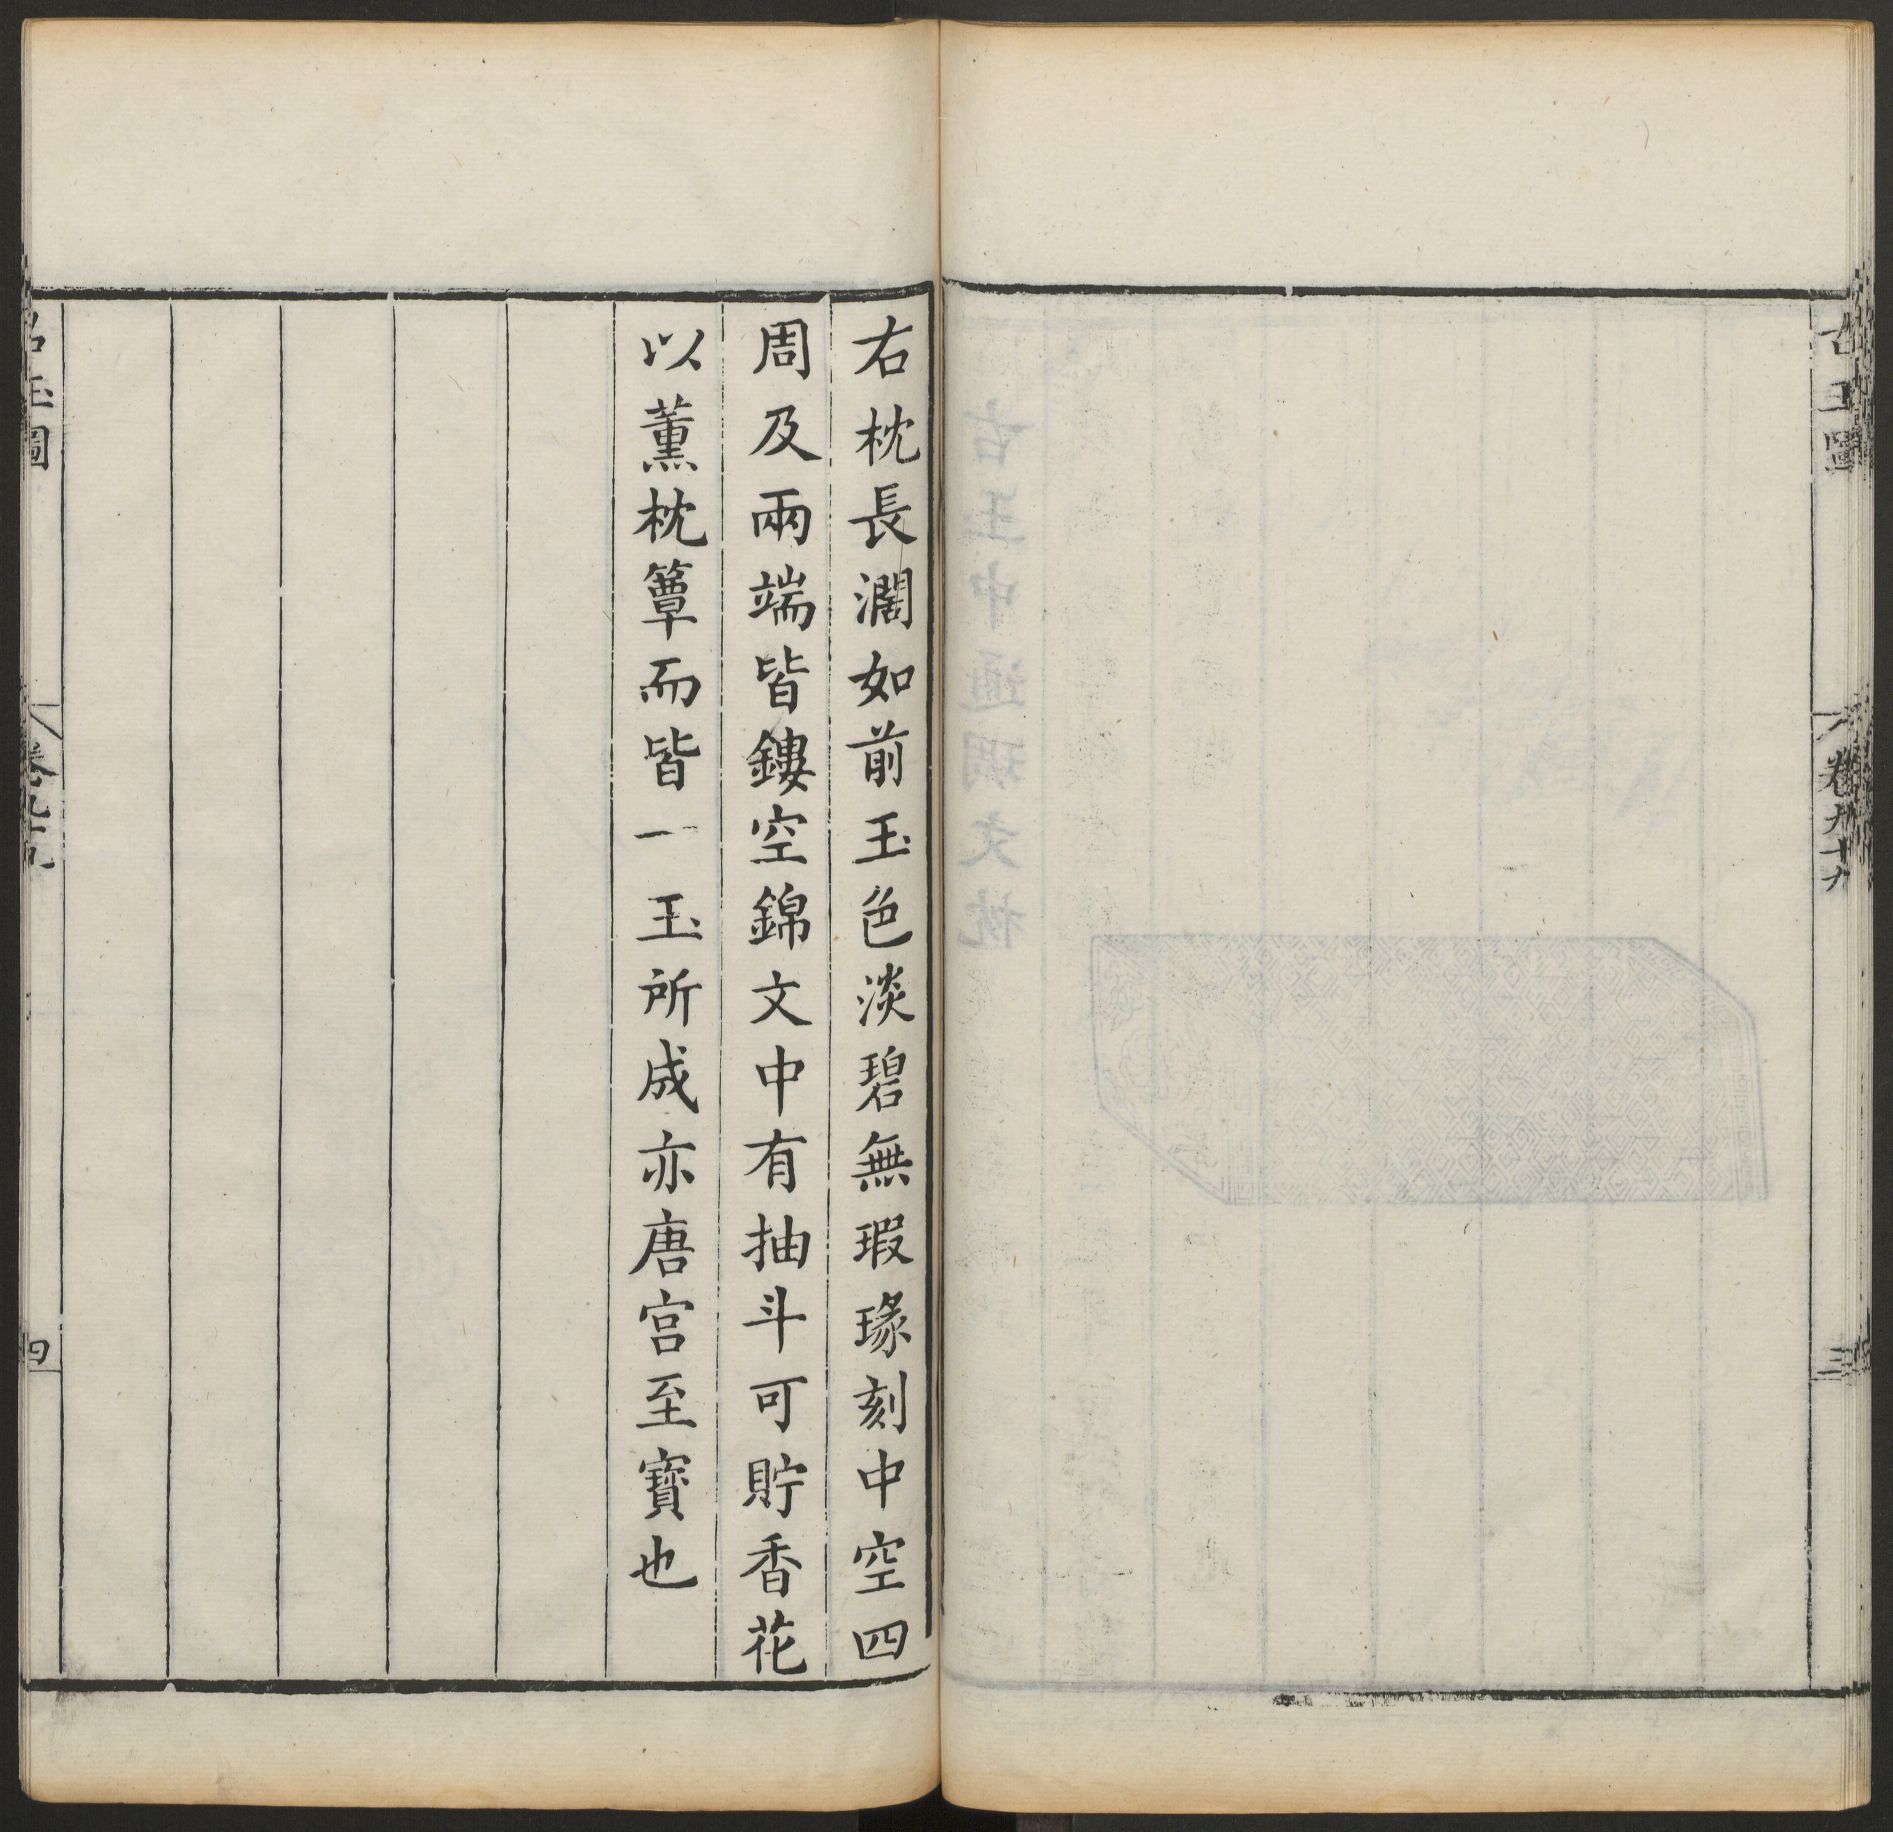 古玉圖
卷九十九
三
右枕長濶如前玉色淡碧無瑕瑑刻中空四
周及兩端皆鏤空錦文中有抽斗可貯香花
以薰枕簟而皆一玉所成亦唐宫至寶也
古玉圖
卷九十九
四